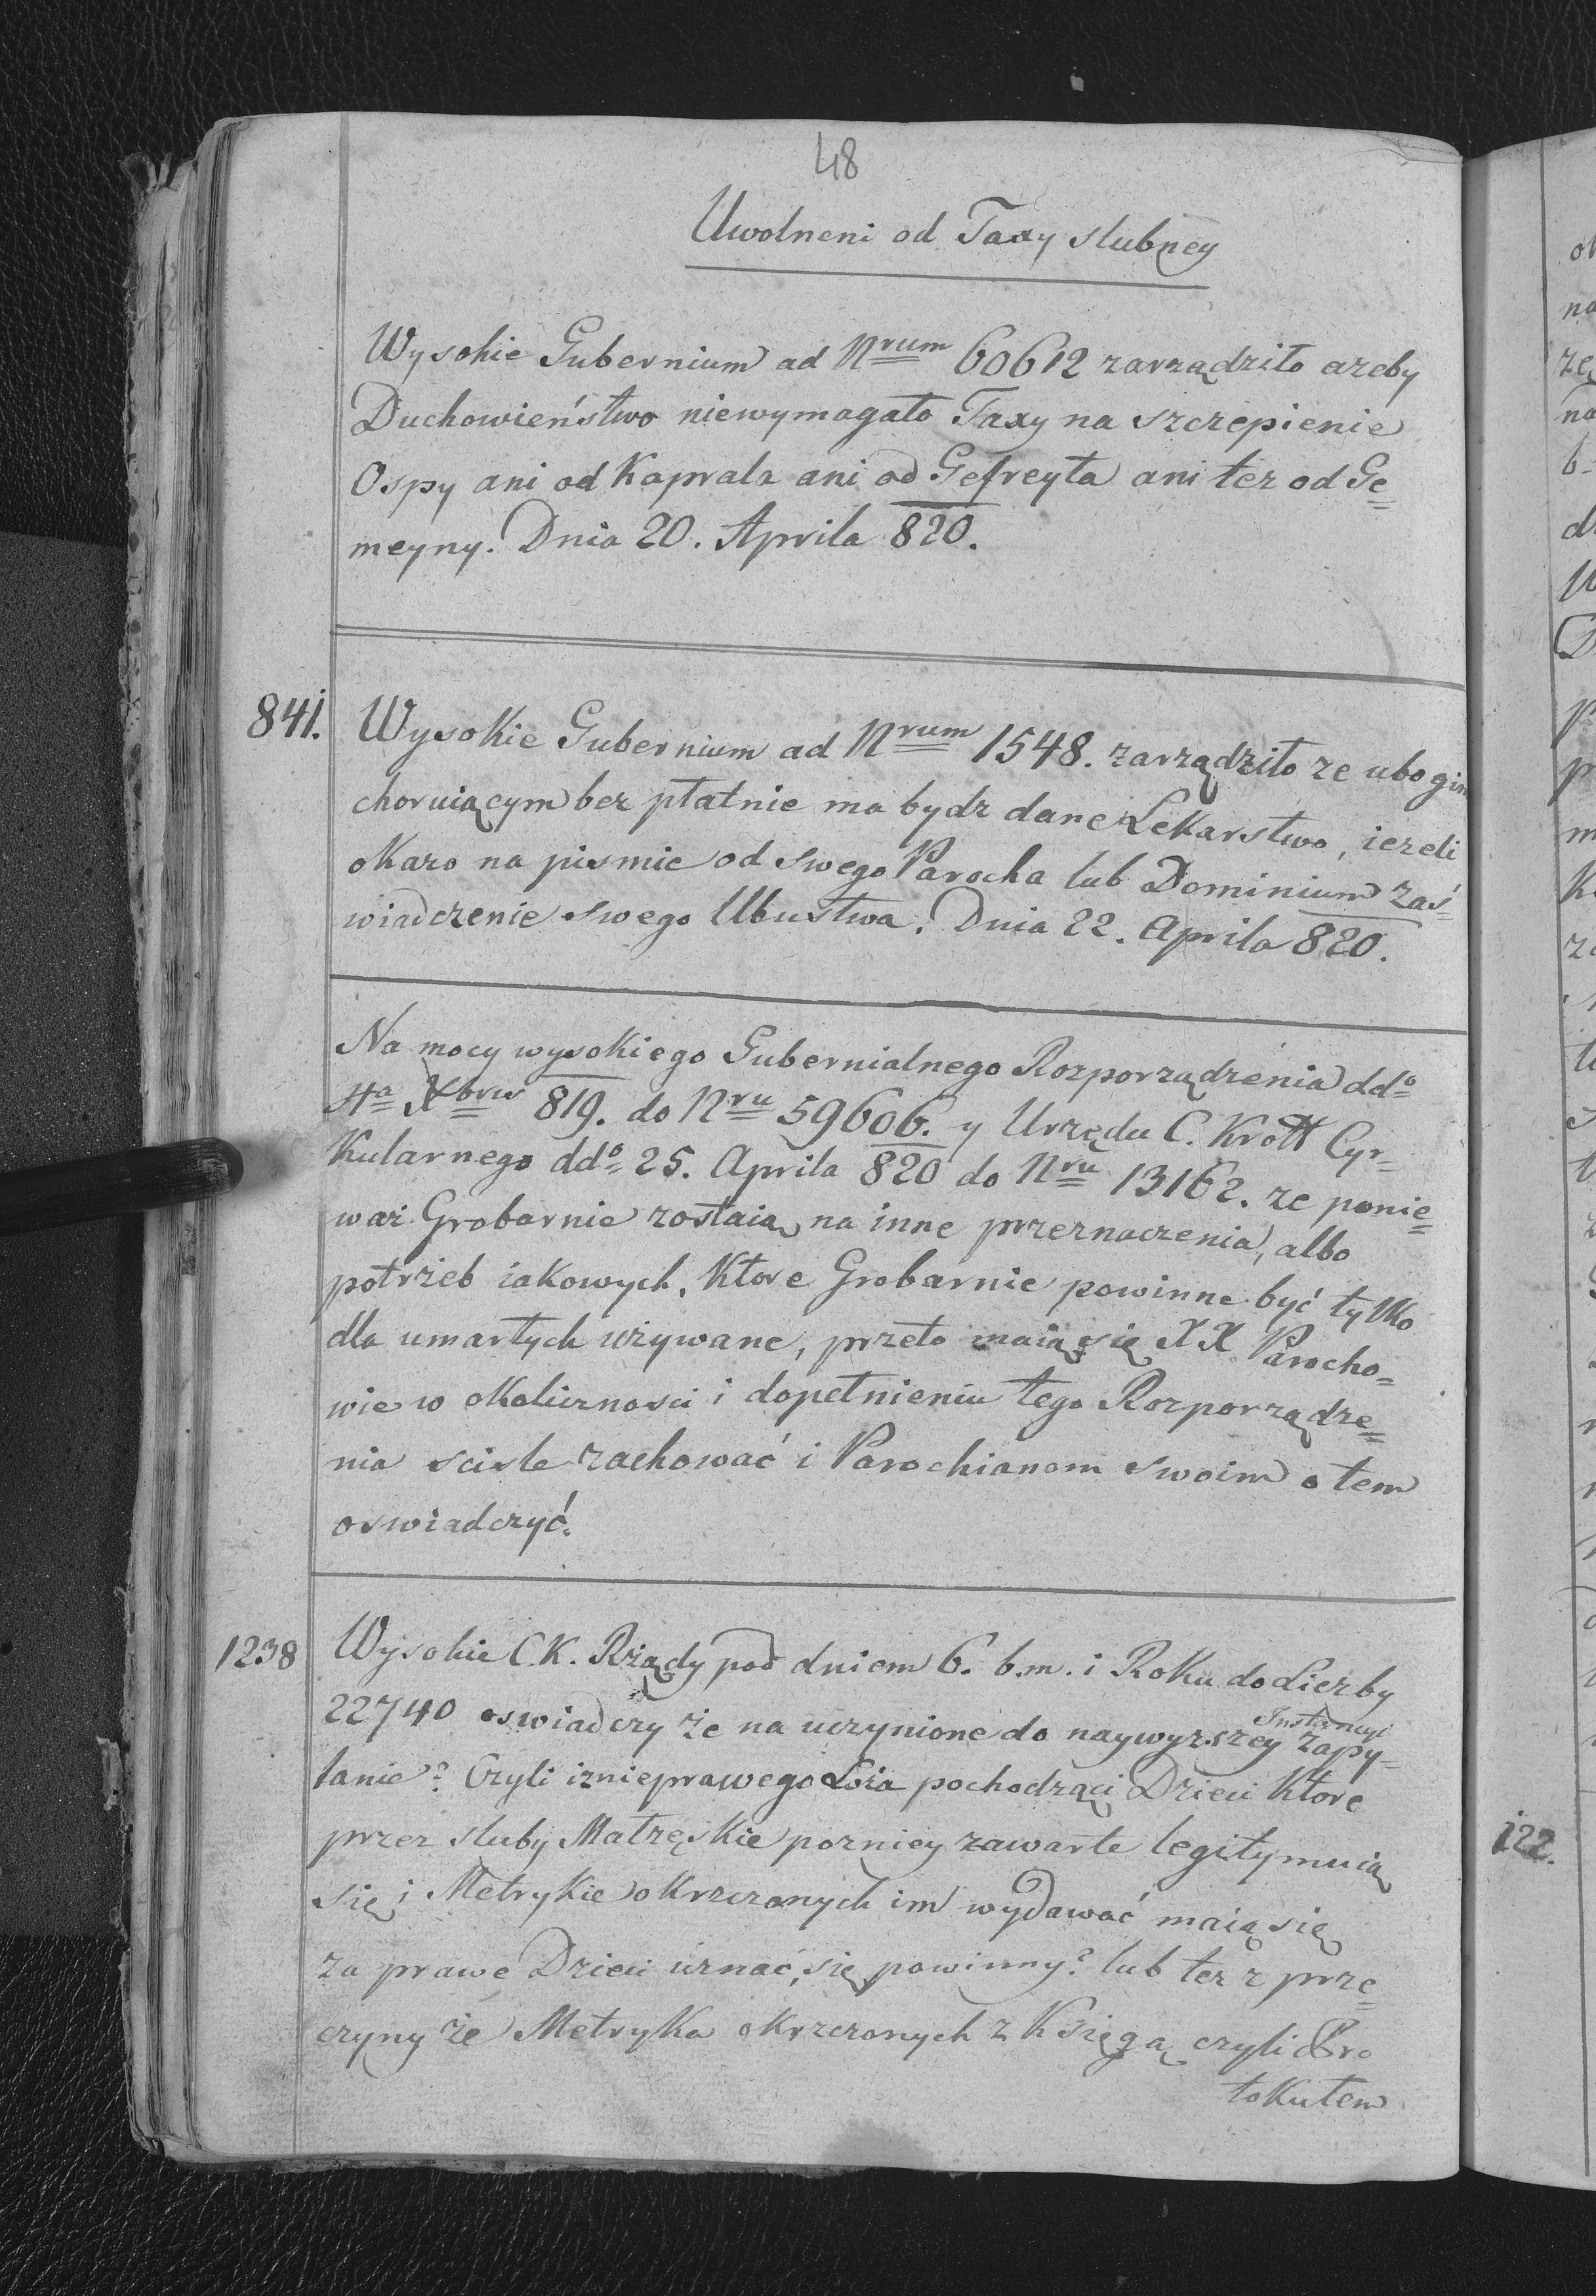 48
Uwolneni od Taxy slubney
Wysokie Gubernium ad Nrum 60612 zarządziło azeby
Duchowieństwo niewymagało Taxy na szczepienie
Ospy ani od Kaprala ani od Gefreyta ani tez od Ge=
meyny. Dnia 20. Aprila 820.
841. Wysokie Gubernium ad Nrum 1548. zarządziło ze ubogim
choruiącym bez płatnie ma bydz dane Lekarstwo, iezeli
okazo na pismie od swego Parocha lub Dominium zaś=
wiadczenie swego Ubustwa. Dnia 22. Aprila 820.
Na mocy wysokiego Gubernialnego Rozporządzenia ddo
4ta Xbris 819. do Nru 59606. y Urzędu C. Krolł Cyr=
kularnego ddo 25. Aprila 820 do Nru 13162. ze ponie=
waż Grobarnie zostaią na inne przeznaczenia, albo
potrzeb iakowych, Ktore Grobarnie powinne być tylko
dla umarłych używane, przeto maią się XX Parocho=
wie w okoliznosci i dopełnieniu tego Rozporządze=
nia scisle zachować i Parochianom swoim o tem
oswiadczyć.
1238 Wysokie C.K. Rządy pod dniem 6. b.m. i Roku do Liczby
22740 oswiadczy że na uczynione do naywyzszey Instancyi Zapy=
tanie? Czyli iznieprawego Łoża pochodzącj Dzieci Ktore
przez sluby Małzęskie pozniey zawarte legitymuią
się i Metrykie okrzczonych im wydawać maią się
za prawe Dzieci uznać, się powinny? lub tez z prze=
czyny że Metryka okrzczonych z Księgą czyli Pro
tokułem
122.